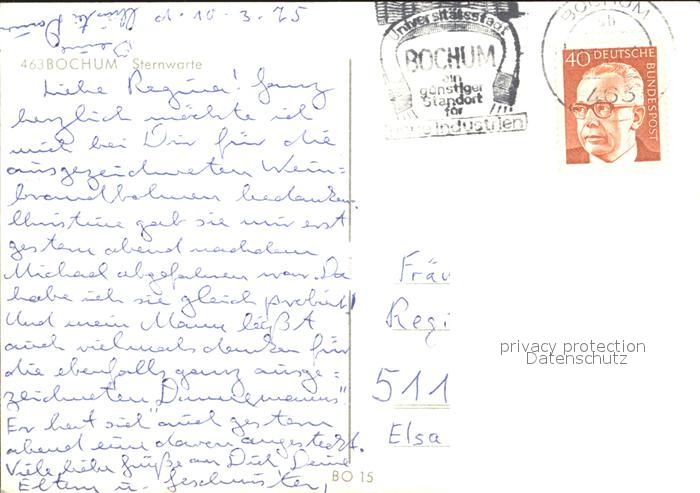 d. 10.3.75
463 BOCHUM Sternwarte
Liebe Regina! Ganz
herzlich möchte ich
mich bei Dir für die
ausgezeichneten Wein=
brandbohnen bedanken.
Christine gab sie mir erst
gestern abend nachdem
Michael abgefahren war. Da
habe ich sie gleich probiert!
Und mein Mann läßt
auch vielmals danken für
die ebenfalls ganz ausge=
zeichneten "Dannemanns".
Er hat sich auch gestern
abend eine davon angesteckt.
Viele liebe Grüße an Dich, Deine
Eltern u. Geschwister,
BO 15
Universitätsstadt
BOCHUM
ein
günstiger
Standort
für
Industrien
BOCHUM
463
40 DEUTSCHE
BUNDESPOST
Fräu
Regi
511
Elsa
privacy protection
Datenschutz